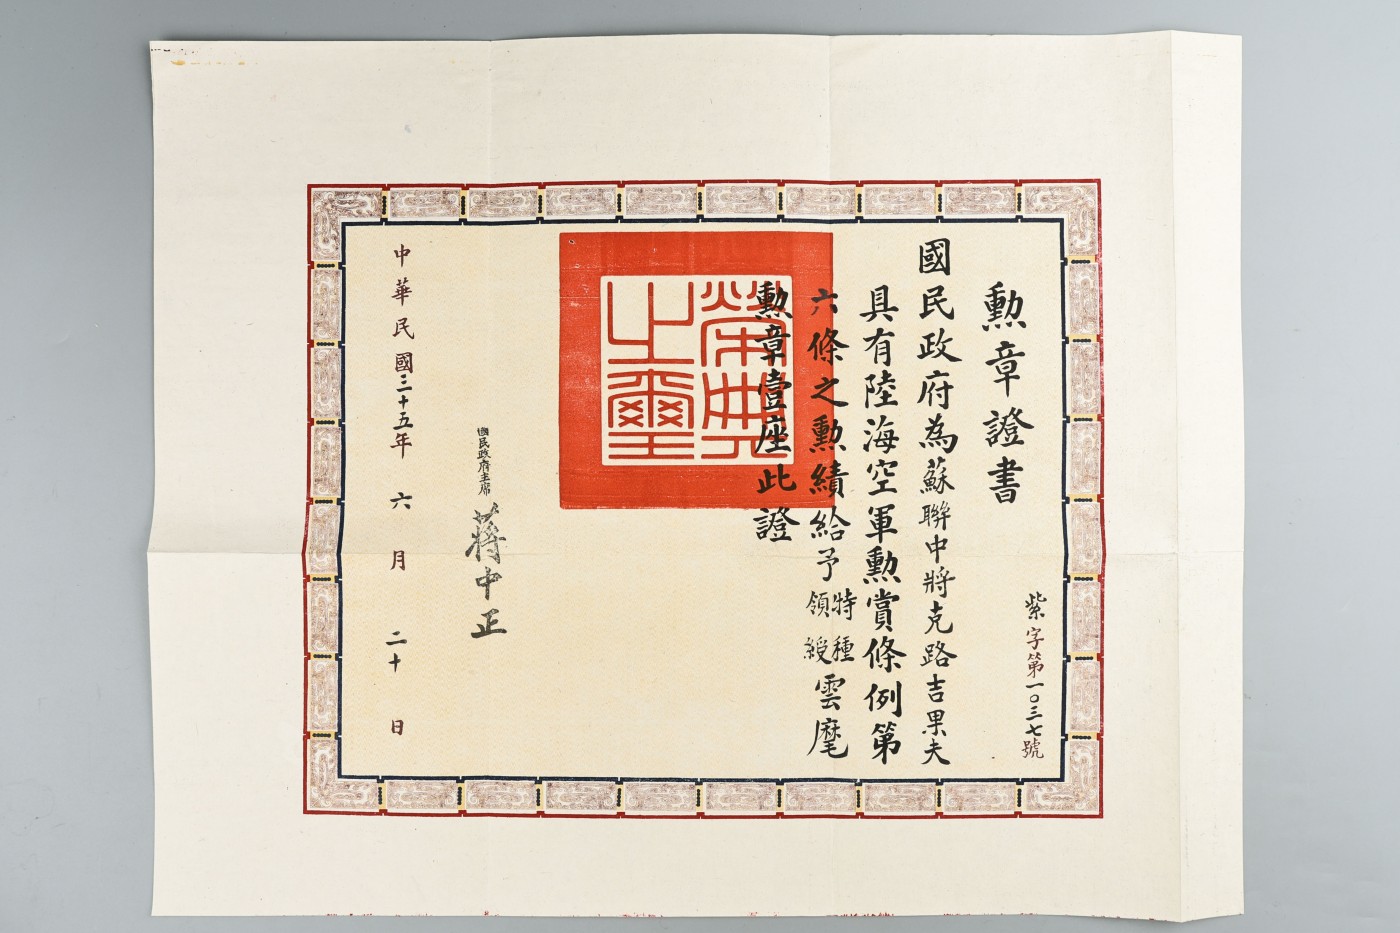 勲章證書
紫字第一〇三七號
國民政府為蘇聯中將克路吉果夫
具有陸海空軍勲賞條例第
六條之勲績給予特種領綬雲麾
勲章壹座此證
榮典之璽
國民政府主席
蔣中正
中華民國三十五年六月二十日